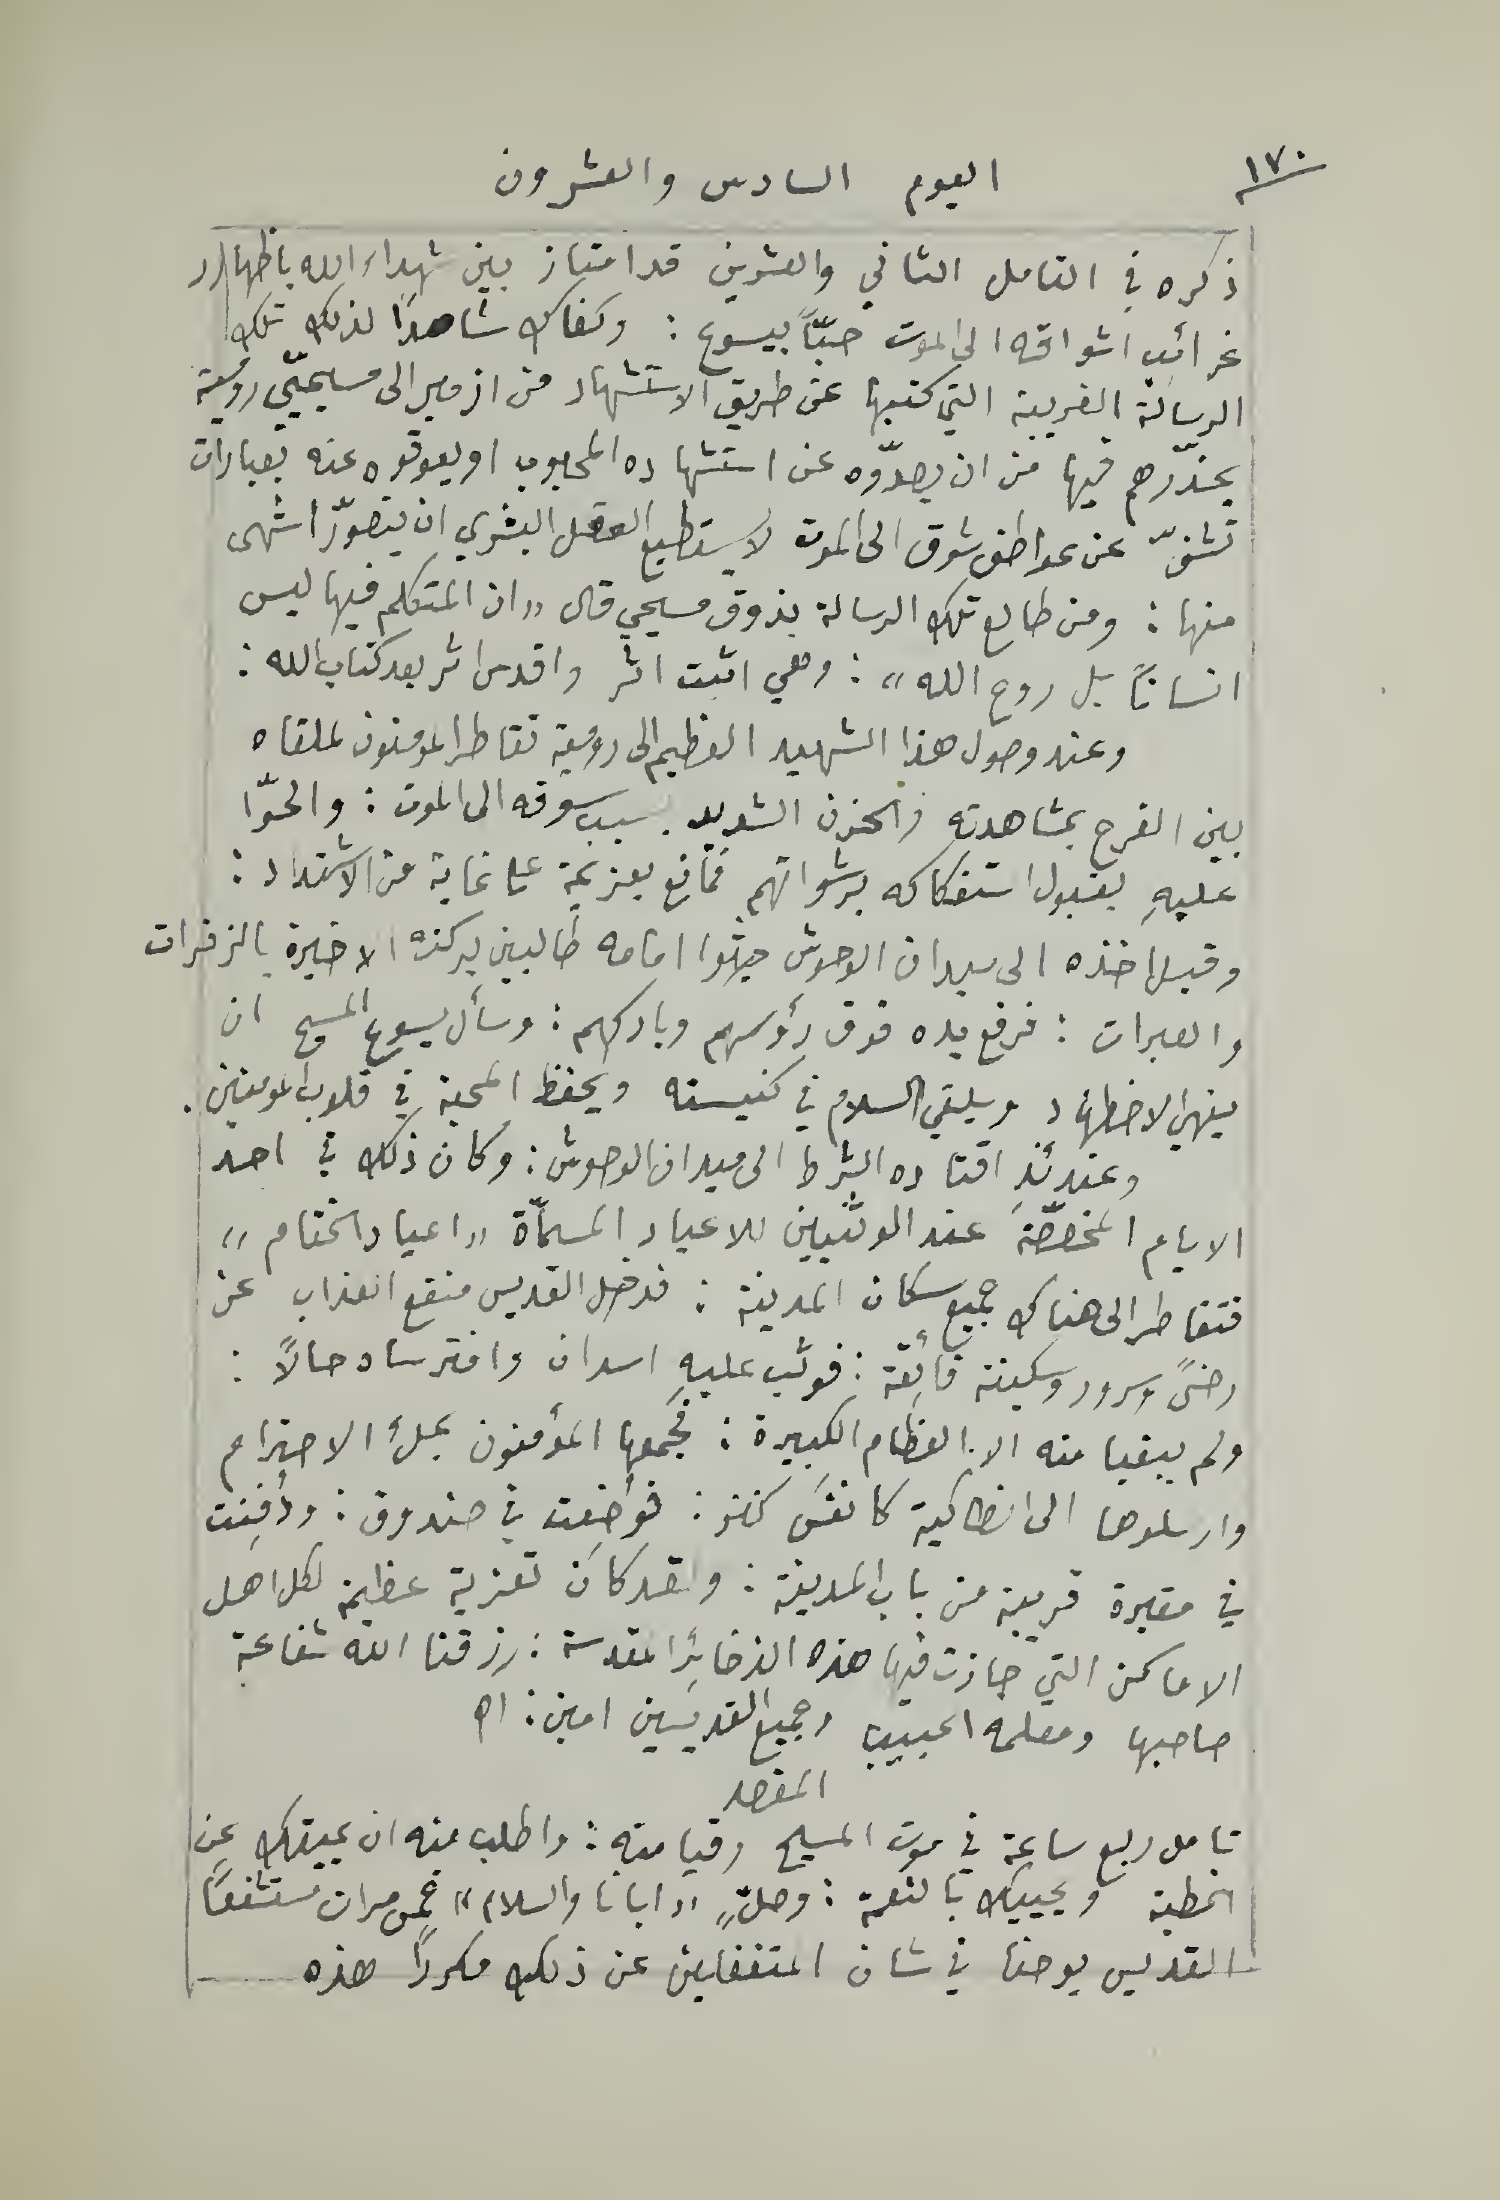 ١٧٠
اليوم السادس والعشرون
ذكره في التامل الثاني والعشرين قد امتاز بين شهداء الله باظهار
غرائب اشواقه الى الموت حبّاً بيسوع : وكفاك شاهدًا لذلك تلك
الرسالة الغريبة التي كتبها عن طريق الاستشهاد من ازمير الى مسيحيّي رومية
يحذّرهم فيها من ان يصدّوه عن استشهاده المحبوب او يعوقوه عنه بعبارات
تشفّ عن عواطف شوق الى الموت لا يستطيع العقل البشري ان يتصوّر اشهى
منها : ومن طالع تلك الرسالة بذوق مسيحي قال « ان المتكلم فيها ليس
انساناً بل روح الله » : وهي اثبت اثر واقدس اثر بعد كتاب الله :
وعند وصول هذا الشهيد العظيم الى رومية تقاطر المومنون لملقاه
بين الفرح بمشاهدته والحزن الشديد بسبب سوقه الى الموت : والحوّا
عليهِ بقبول استفكاكه برشواتهم فمانع بعزيمة على غاية من الاشتداد :
وقبل اخذه الى ميدان الوحوش جثوا امامه طالبين بركته الاخيرة بالزفرات
والعبرات : فرفع يده فوق رؤوسهم وباركهم : وسأل يسوع المسيح ان
ينهي الاضطهاد ويلقي السلام في كنيسته ويحفظ المحبة في قلوب المومنين .
وعندئذٍ اقتاده الشرط الى ميدان الوحوش : وكان ذلك في احد
الايام المخصّصة عند الوثنيين للاعياد المسمّاة « اعياد الختام »
فتقاطر الى هناك جميع سكان المدينة : فدخل القديس منقع العذاب عن
رضىً وسرور وسكينة فائقة : فوثب عليهِ اسدان وافترساه حالاً :
ولم يبقيا منه الا العظام الكبيرة : فجمعها المؤمنون بملء الاحترام
وارسلوها الى انطاكية كانفَس كنز : فوُضِعت في صندوق : ودُفِنت
في مقبرة قريبة من باب المدينة : ولقد كان تعزية عظيمة لكل اهل
الاماكن التي جازت فيها هذه الذخائر المقدسة : رزقنا الله شفاعة
صاحبها ومعلمه الحبيب وجميع القديسين امين : اه
المقصد
تامل ربع ساعة في موت المسيح وقيامته : واطلب منه ان يميتك عن
الخطية ويحييك بالنعمة : وصلِّ « ابانا والسلام » خمس مرات مستشفعًا
القديس يوحنا في شان المتغفلين عن ذلك مكررًا هذه